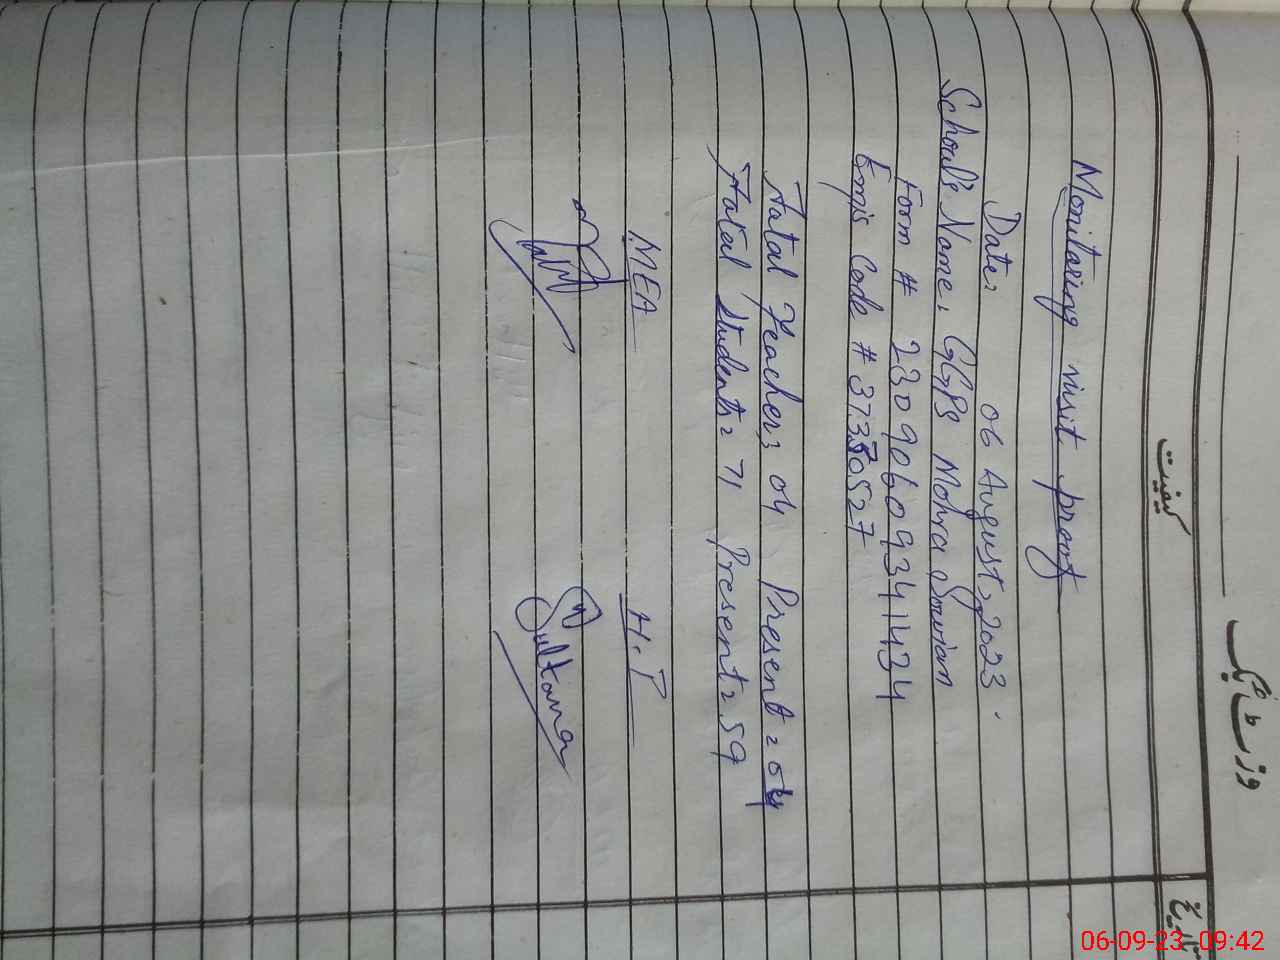 وزٹ بک
کیفیت
تاریخ
Monitoring visit proof
Date: 06 August, 2023.
School's Name: GGPS Mohra
Form # 23090609341434
Emis Code # 37330527
Total Teachers 04 Present = 04
Total Students = 71 Present = 59
MEA H.T
Sultana
06-09-23 09:42